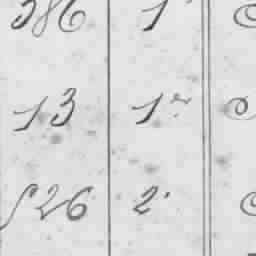 386 1.
13 1.
526 2.